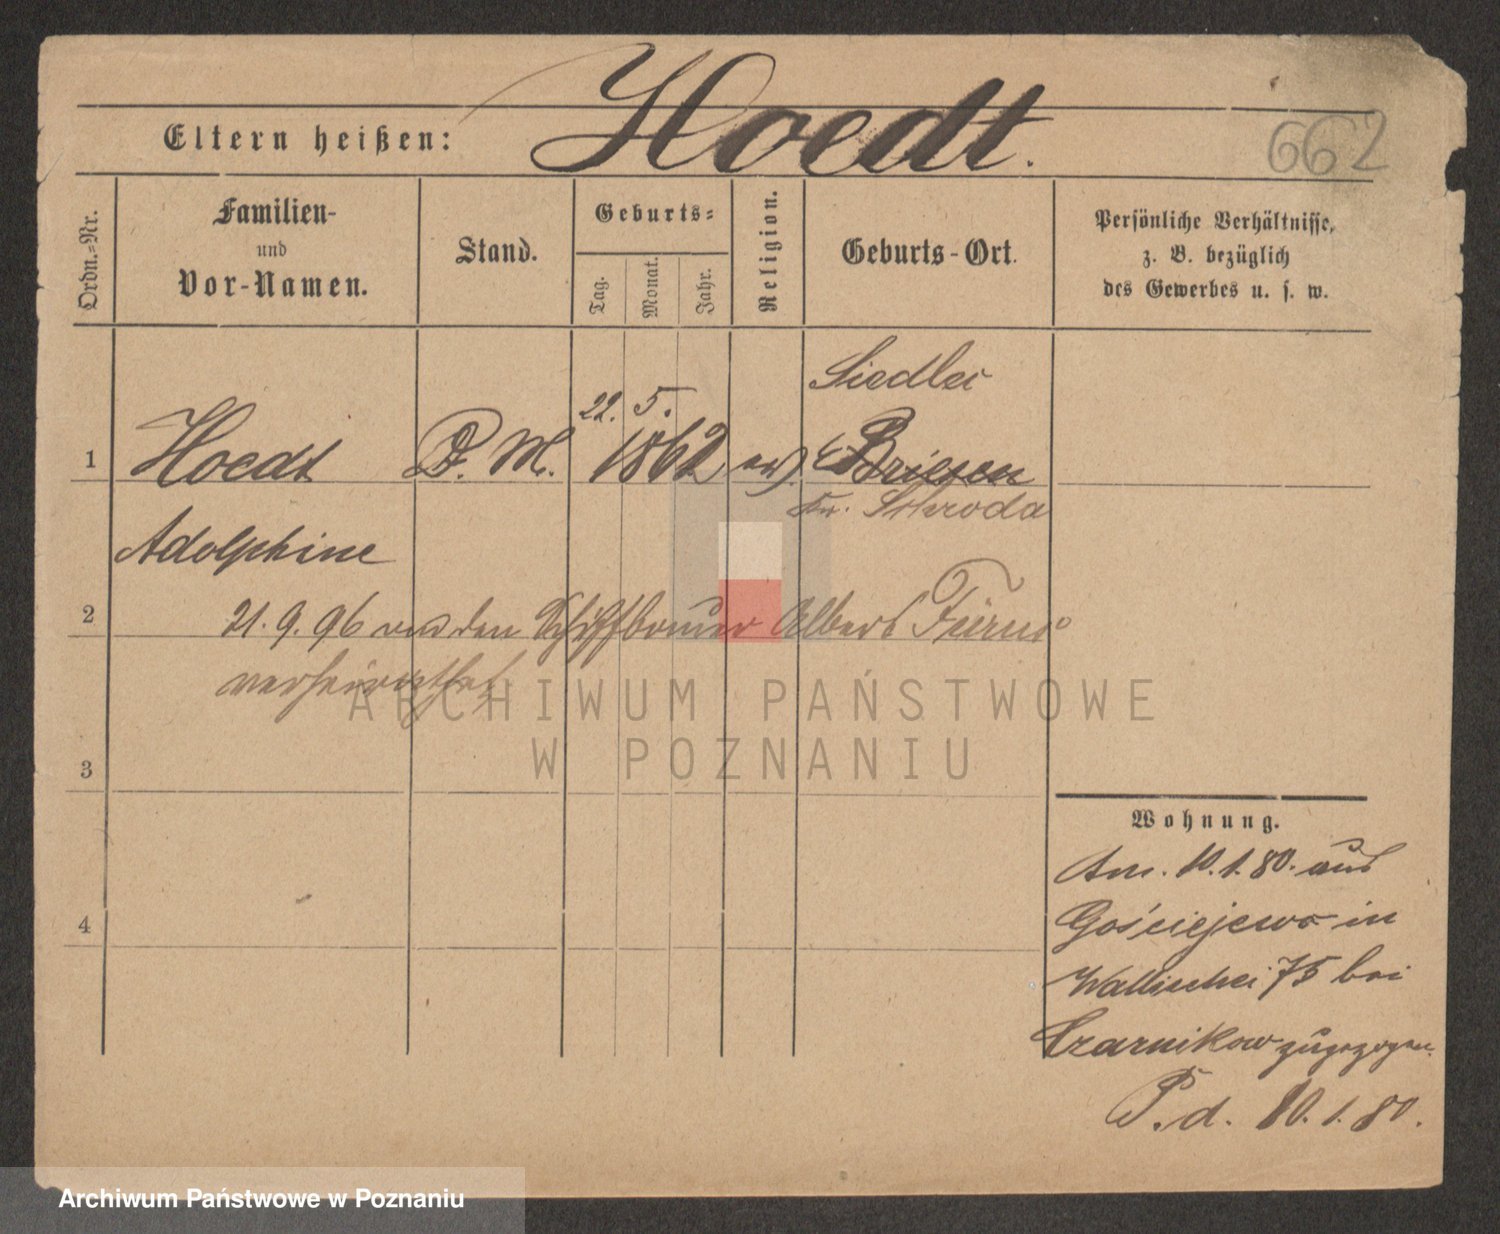 Hoedt.
Eltern heißen:
662
Ordn.-Nr.
Familien-
und
Vor-Namen.
Stand.
Geburts-
Tag.
Monat.
Jahr.
Religion.
Geburts-Ort.
Persönliche Verhältnisse,
z. B. bezüglich
des Gewerbes u. s. w.
1
Hoedt
D. M.
22. 5.
1862
ev.
Siedlec
Briesen
Kr. Schroda
Adolphine
2
21. 9. 96 an den Schiffbauer Albert
verheirathet
3
4
Wohnung.
Am. 10.1.80. aus
Gościejewo in
Wallischei 75 bei
Czarnikow zugezogen.
P. d. 10. 1. 80.
ARCHIWUM PAŃSTWOWE
W POZNANIU
Archiwum Państwowe w Poznaniu